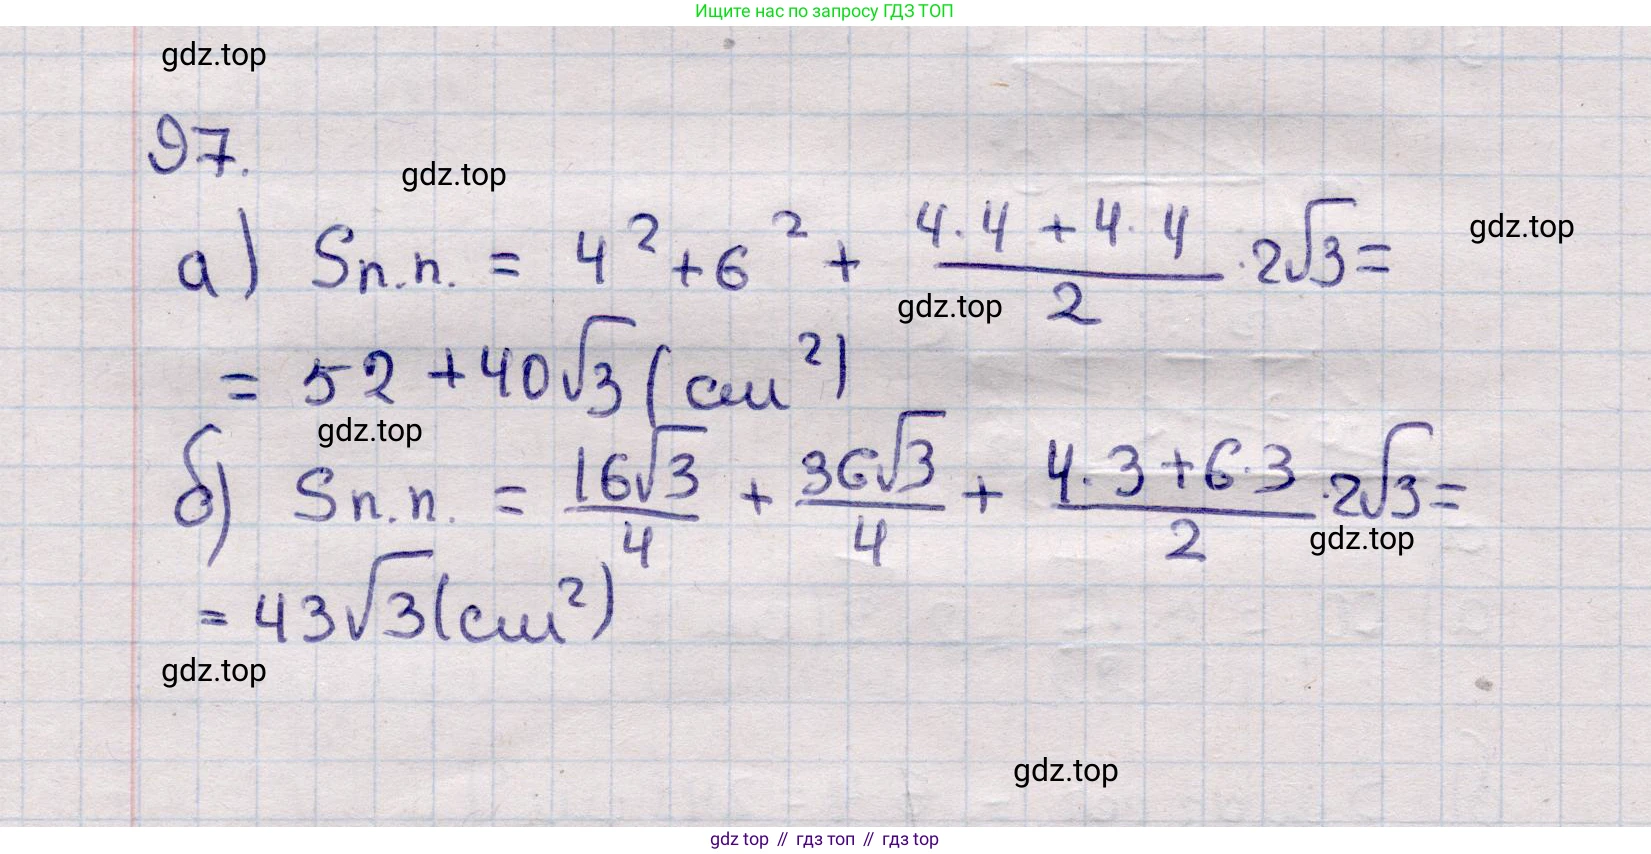 Ищите нас по запросу ГДЗ ТОП
gdz.top
97.
gdz.top
а) Sп.п. = 4² + 6² + (4·4 + 4·4)/2 · 2√3 =
gdz.top
gdz.top
= 52 + 40√3 (см²)
gdz.top
б) Sп.п. = 16√3/4 + 36√3/4 + (4·3 + 6·3)/2 · 2√3 =
gdz.top
= 43√3 (см²)
gdz.top
gdz.top
gdz top // гдз топ // гдз top